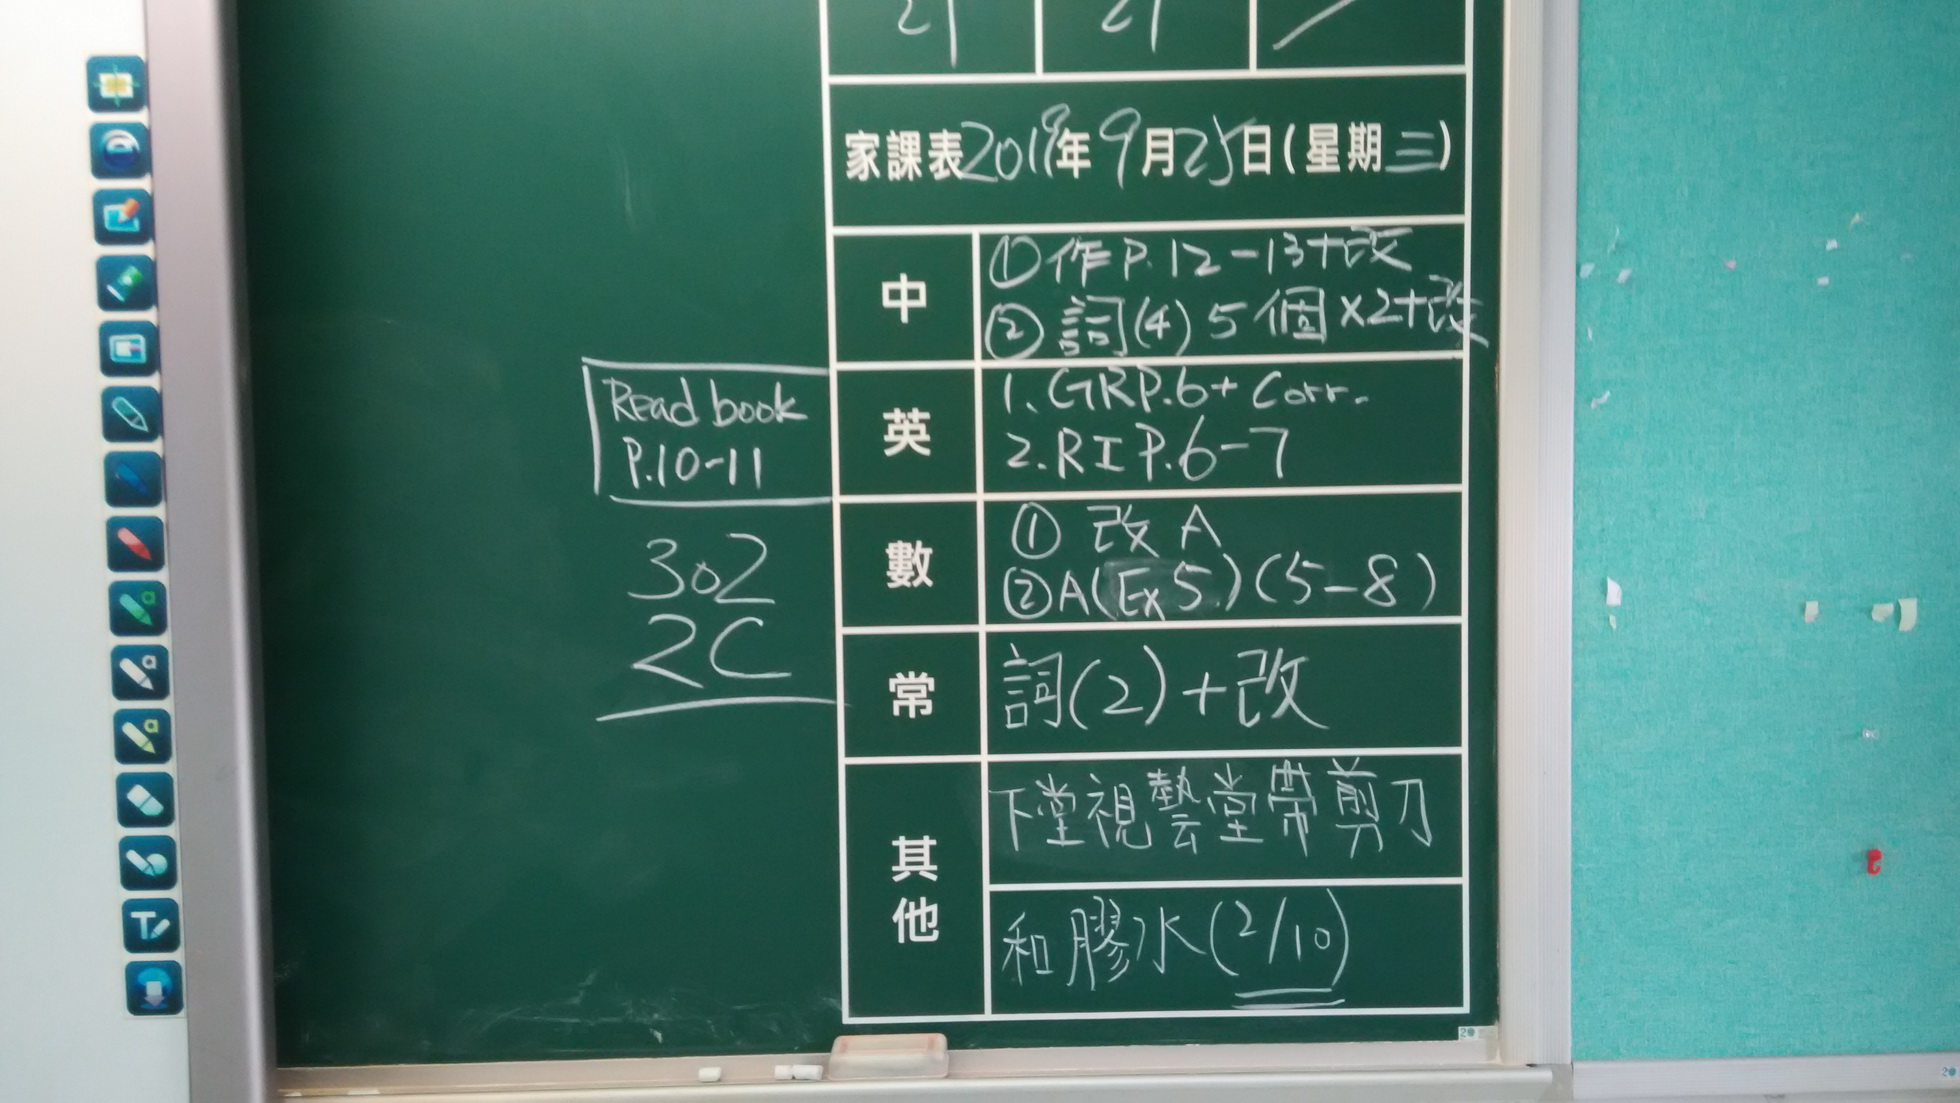 21 21
家課表2019年9月25日(星期三)
中
①作P.12-13+改
②詞(4)5個×2+改
Read book
P.10-11
英
1. GRP.6+ Corr.
2. RIP.6-7
302
2C
數
① 改A
②A(Ex 5)(5-8)
常
詞(2)+改
其他
下堂視藝堂帶剪刀
和膠水(2/10)